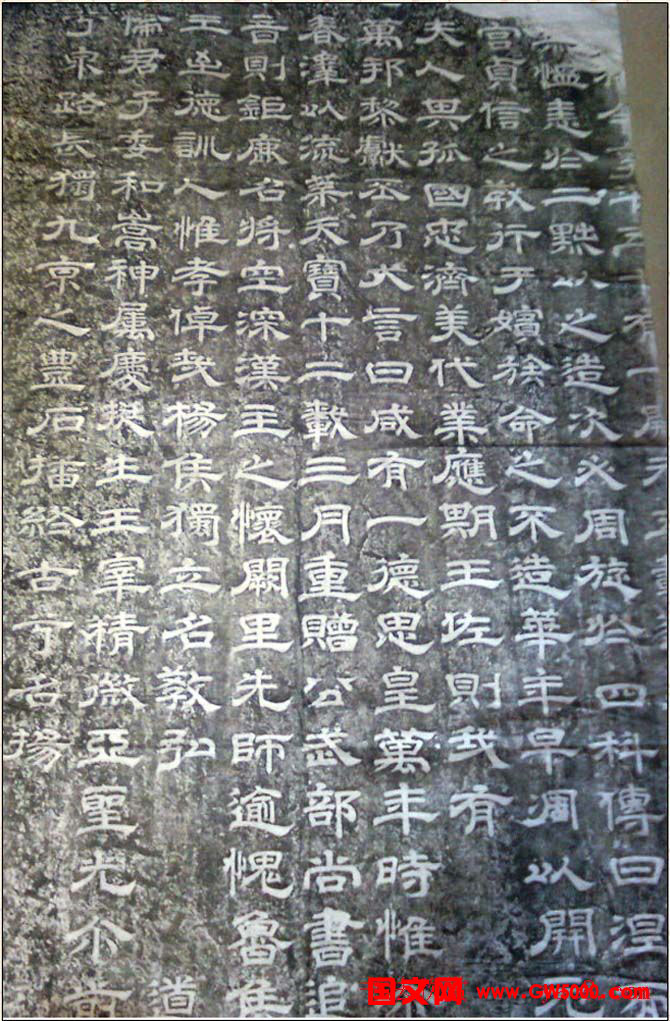 慍憙於二黜以之造次必周旋於四科傳曰涅
宮貞信之教行于嬪族命之不造華年早凋以開元
夫人畀孤國忠濟美代業應期王佐則我有
萬邦黎獻丕乃大言曰咸有一德思皇萬年時惟
春澤以流葉天寶十二載三月重贈公武部尚書追
音則鉅鹿名將空深漢主之懷闕里先師逾愧魯侯
王出德訓人惟孝倬哉楊侯獨立名教弘道
儒君子委和嵩神属慶挺生王宰精微亞聖光介前
路長獨九京之豐石播終古名揚
国文网 www.GW5000.com